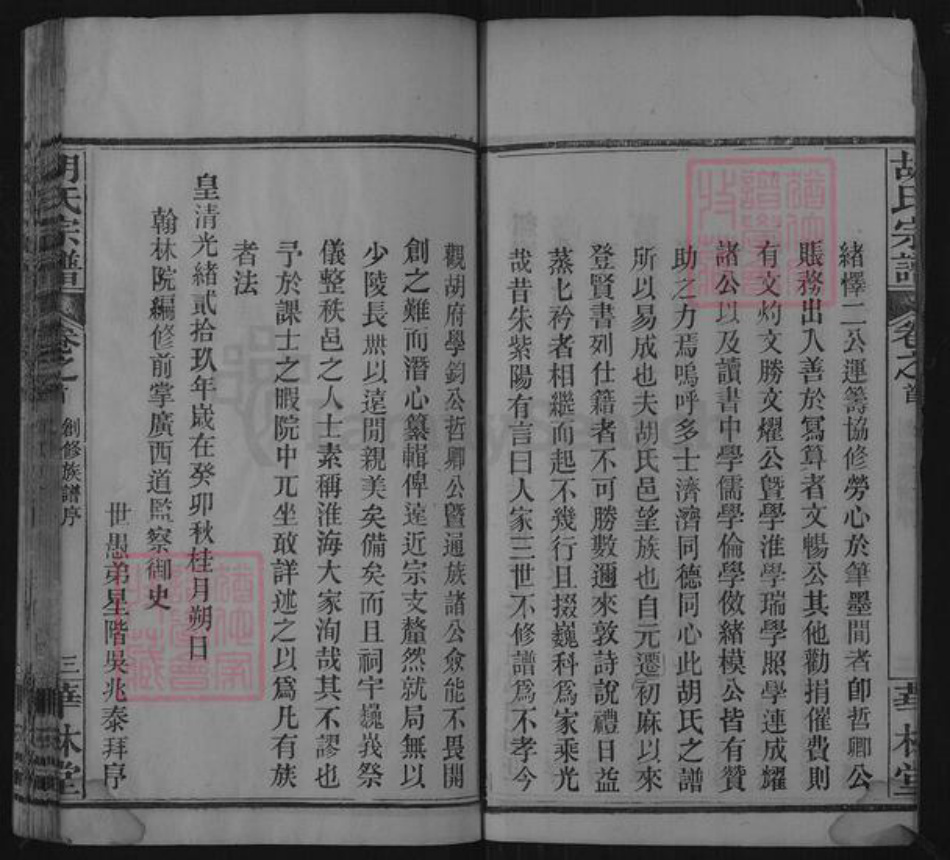 胡氏宗譜
卷之首
華林堂
緒懌二公運籌協修勞心於筆墨間者卽哲卿公
賬務出入善於寫算者文暢公其他勸捐催費則
有文灼文勝文耀公暨學淮學瑞學照學連成耀
諸公以及讀書中學儒學倫學倣緒模公皆有贊
助之力焉嗚呼多士濟濟同德同心此胡氏之譜
所以易成也夫胡氏邑望族也自元遷初麻以來
登賢書列仕籍者不可勝數邇來敦詩說禮日益
蒸七衿者相繼而起不幾行且掇巍科爲家乘光
哉昔朱紫陽有言曰人家三世不修譜爲不孝今
觀胡府學鈞公哲卿公暨遍族諸公僉能不畏開
創之難而潛心纂輯俾遠近宗支釐然就局無以
少陵長無以遠間親美矣備矣而且祠宇巍峩祭
儀整秩邑之人士素稱淮海大家洵哉其不謬也
予於課士之暇院中兀坐敢詳述之以爲凡有族
者法
皇清光緒貳拾玖年歲在癸卯秋桂月朔日
翰林院編修前掌廣西道監察御史
世愚弟星階吳兆泰拜序
胡氏宗譜
卷之首
創修族譜序
三
華林堂
FamilySearch